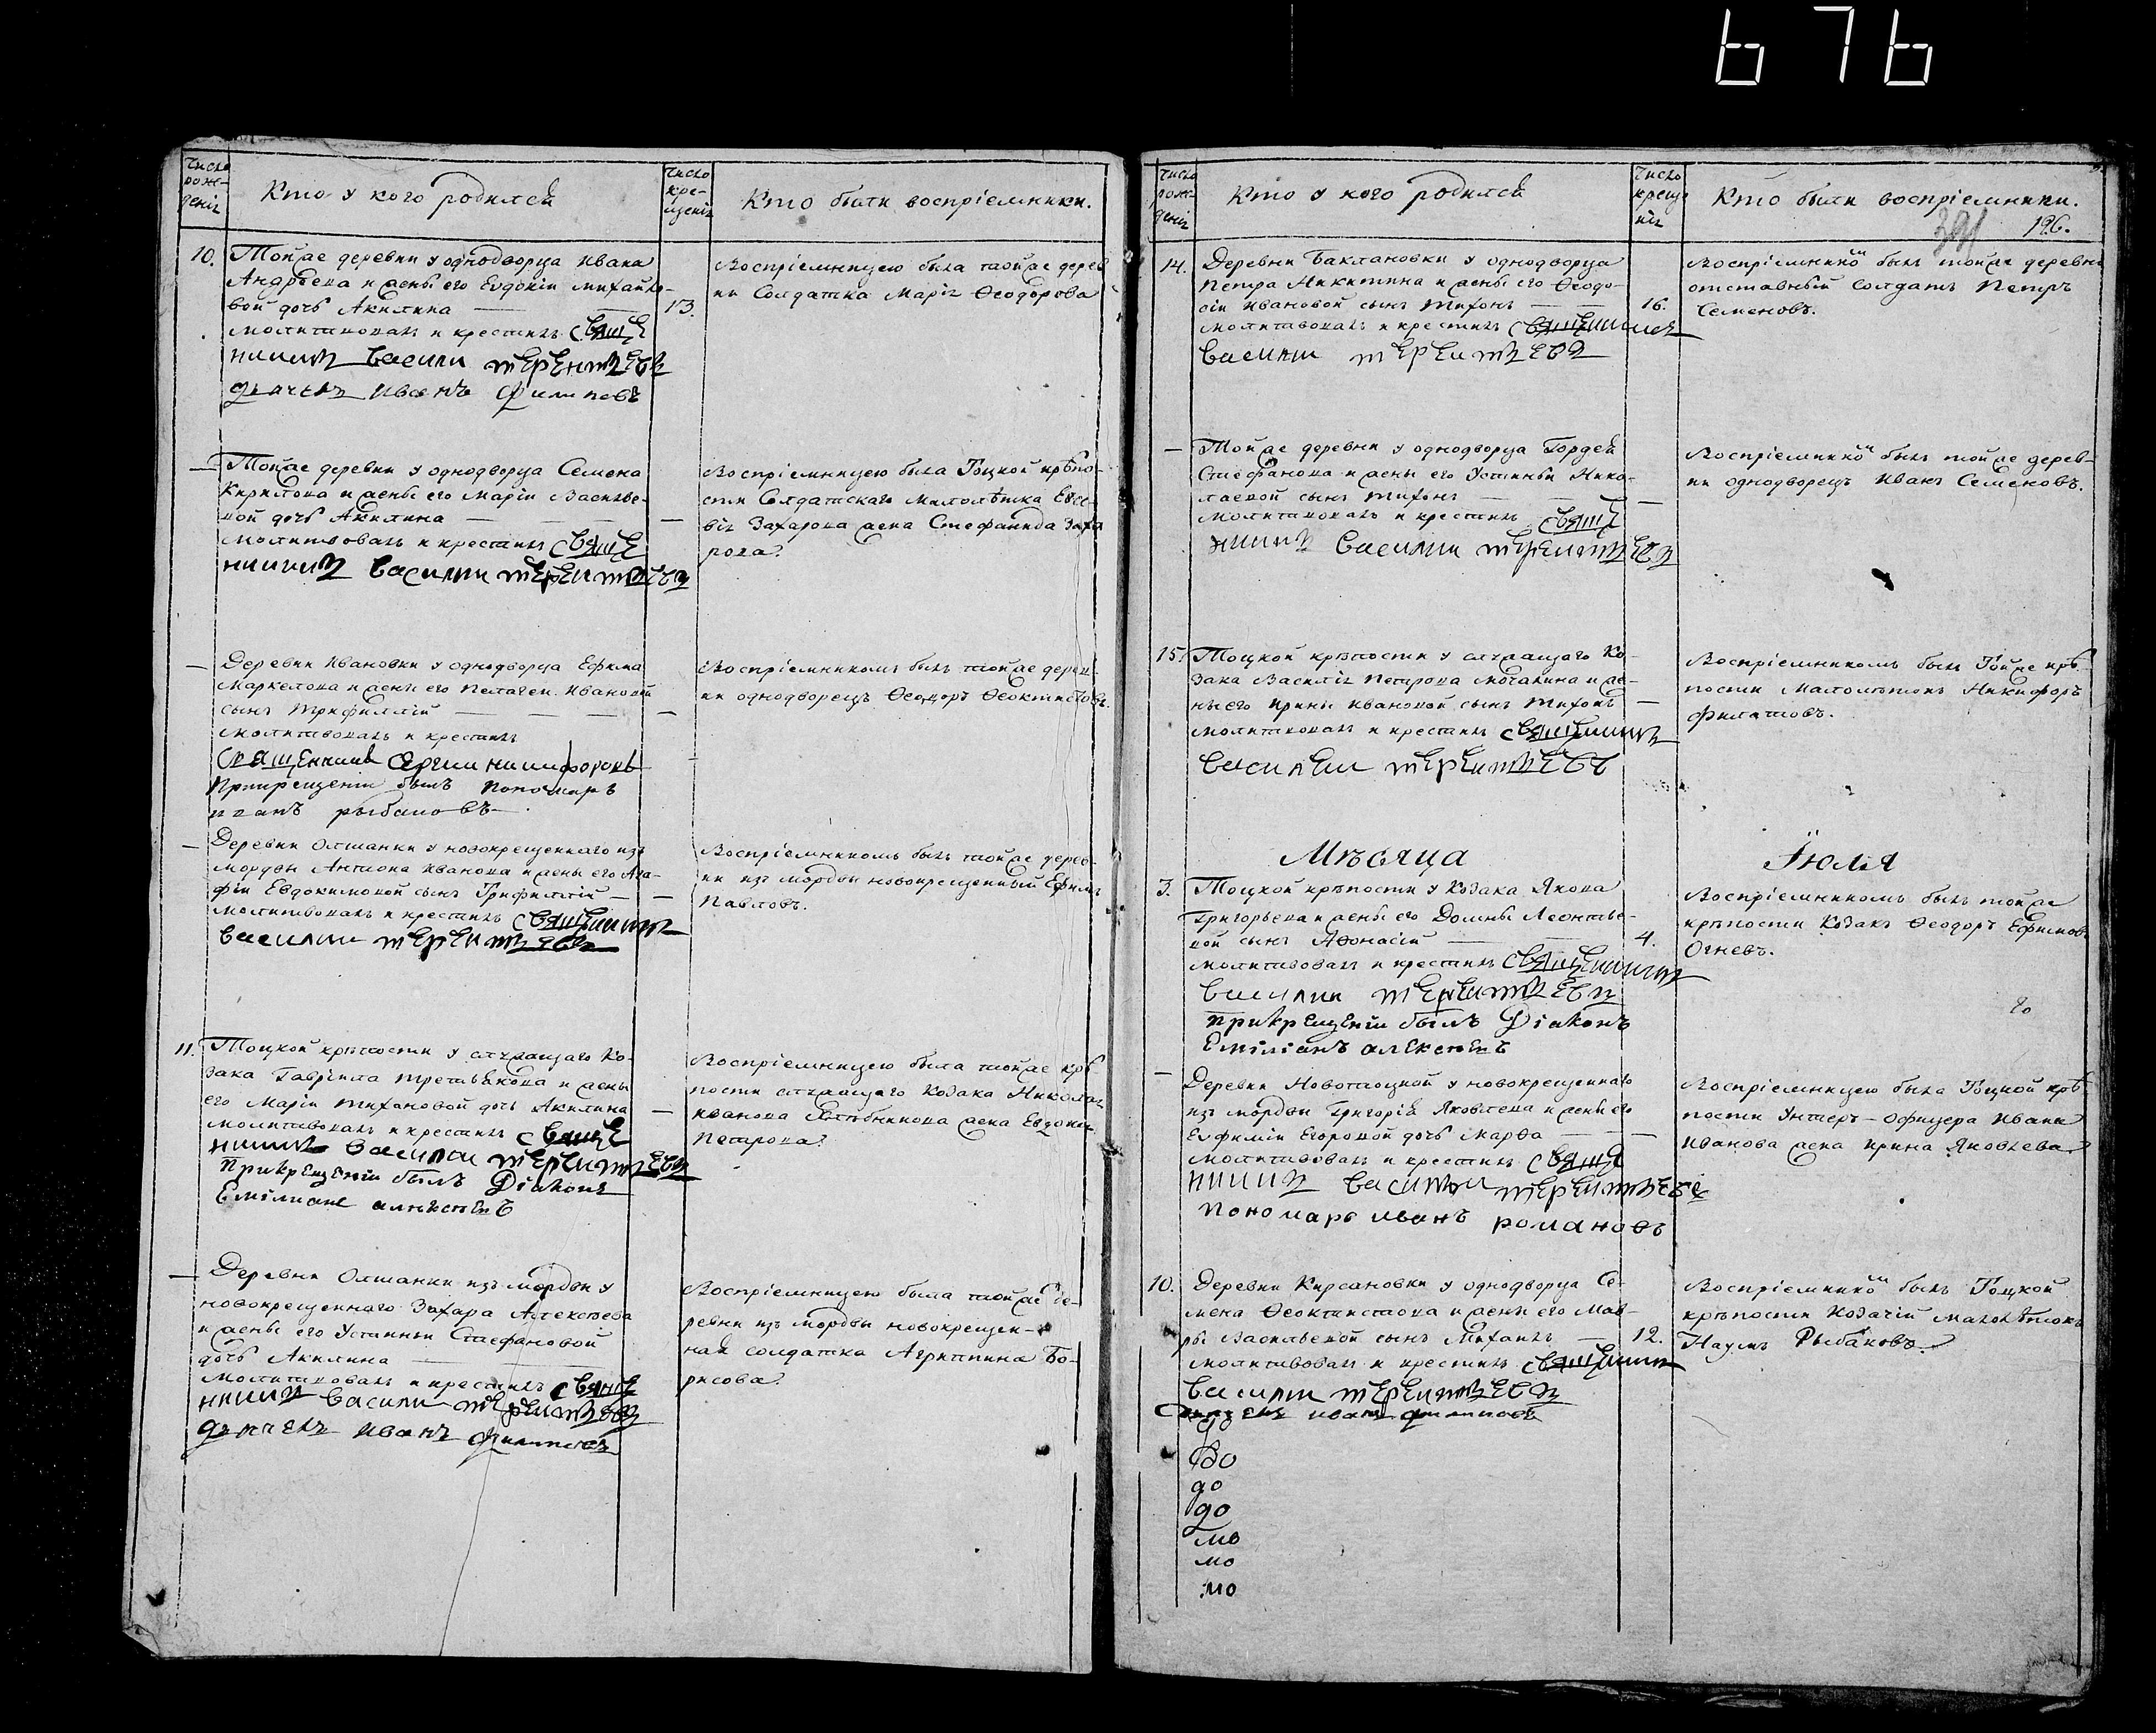 676
Число рож-дениѧ
Кто у кого родился
Число кре-щениѧ
Кто были воспріемники.
10.
Тойже деревни у однодворца Ивана
Андрѣева и жены его Евдокіи Михайло-
вой дочь Акилина
13.
молитвовалъ и крестилъ свяще
нникъ Василий Терентьевъ
дьячекъ Иванъ Филиповъ
Воспріемницею была тойже дерев
ни Солдатка Марія Ѳеодорова
—
Тойже деревни у однодворца Семена
Кирилова и жены его Маріи Василье-
вой дочь Акилина
—
молитвовалъ и крестилъ свяще
нникъ Василий Терентьевъ
Воспріемницею была Тоцкой крѣпо-
сти Солдатскаго малолѣтка Евсе-
віѧ Захарова жена Стефанида Заха
рова.
—
Деревни Ивановки у однодворца Ефима
Маркелова и жены его Пелагеи Ивановой
сынъ Трифиллій
—
молитвовалъ и крестилъ
священникъ Сергий Никифоровъ
Прикрещеніи былъ пономарь
Иванъ Рыбаковъ
Воспріемникомъ былъ тойже дерев-
ни однодворецъ Ѳеодоръ Ѳеоктистовъ.
—
Деревни Олшанки у новокрещеннаго изъ
мордвы Антона Иванова и жены его Ага-
фіи Евдокимовой сынъ Трифиллій
—
молитвовалъ и крестилъ священникъ
Василий Терентьевъ
Воспріемникомъ былъ тойже дерев-
ни изъ мордвы новокрещенный Ефимъ
Павловъ.
11.
Тоцкой крѣпости у служащаго Ко-
зака Гавріила Третьякова и жены
его Маріи Тихановой дочь Акилина
—
молитвовалъ и крестилъ свяще
нникъ Василий Терентьевъ
Прикрещеніи былъ Діаконъ
Емілианъ Алексѣевъ
Воспріемницею была тойже крѣ
пости служащаго Козака Николаѧ
Иванова Хлѣбникова жена Евдокія
Петрова.
—
Деревни Олшанки изъ мордвы у
новокрещеннаго Захара Алексѣева
и жены его Устиньи Стефановой
дочь Акилина
молитвовалъ и крестилъ свяще
нникъ Василий Терентьевъ
дьячекъ Иванъ Филиповъ
Воспріемницею была тойже де-
ревни изъ мордвы новокрещен-
ная солдатка Агриппина Бо-
рисова.
Число рож-дениѧ
Кто у кого родился
Число креще-ниѧ
Кто были воспріемники.
391
196.
14.
Деревни Баклановки у однодворца
Петра Никитина и жены его Ѳеодо-
сіи Ивановой сынъ Тихонъ
16.
молитвовалъ и крестилъ священникъ
Василий Терентьевъ
Воспріемникомъ былъ тойже деревни
отставный солдатъ Петръ
Семеновъ.
—
Тойже деревни у однодворца Гордея
Стефанова и жены его Устиньи Нико-
лаевой сынъ Тихонъ
—
молитвовалъ и крестилъ свяще
нникъ Василий Терентьевъ
Воспріемникомъ былъ тойже дерев-
ни однодворецъ Иванъ Семеновъ.
15.
Тоцкой крѣпости у служащаго Ко-
зака Василіѧ Петрова Мочалина и же-
ны его Ирины Ивановой сынъ Тихонъ
—
молитвовалъ и крестилъ священникъ
Василеи Терентьевъ
Воспріемникомъ былъ Тойже крѣ-
пости Малолѣтокъ Никифоръ
Филатовъ.
Мѣсяца Іюля
3.
Тоцкой крѣпости у Козака Якова
Григорьева и жены его Домны Леонтье-
вой сынъ Аѳонасій
4.
молитвовалъ и крестилъ священникъ
Василий Терентьевъ
Прикрещеніи былъ Діаконъ
Еміліанъ Алексѣевъ
Воспріемникомъ былъ тойже
крѣпости Козакъ Ѳеодоръ Ефимовъ
Огневъ.
—
Деревни Новотоцкой у новокрещеннаго
изъ мордвы Григорія Яковлева и жены его
Евфиміи Егоровой дочь Марѳа
—
молитвовалъ и крестилъ свяще
нникъ Василий Терентьевъ
Пономарь Иванъ Романовъ
Воспріемницею была Тоцкой крѣ
пости Унтеръ-офицера Ивана
Иванова жена Ирина Яковлева
10.
Деревни Кирсановки у однодворца Се-
мена Ѳеоктистова и жены его Мав-
ры Васильевой сынъ Михаилъ
12.
молитвовалъ и крестилъ священникъ
Василий Терентьевъ
дьячекъ Иванъ Филиповъ
Воспріемникомъ былъ Тоцкой
крѣпости Козачій малолѣтокъ
Наумъ Рыбаковъ.
до
во
до
до
мо
мо
мо